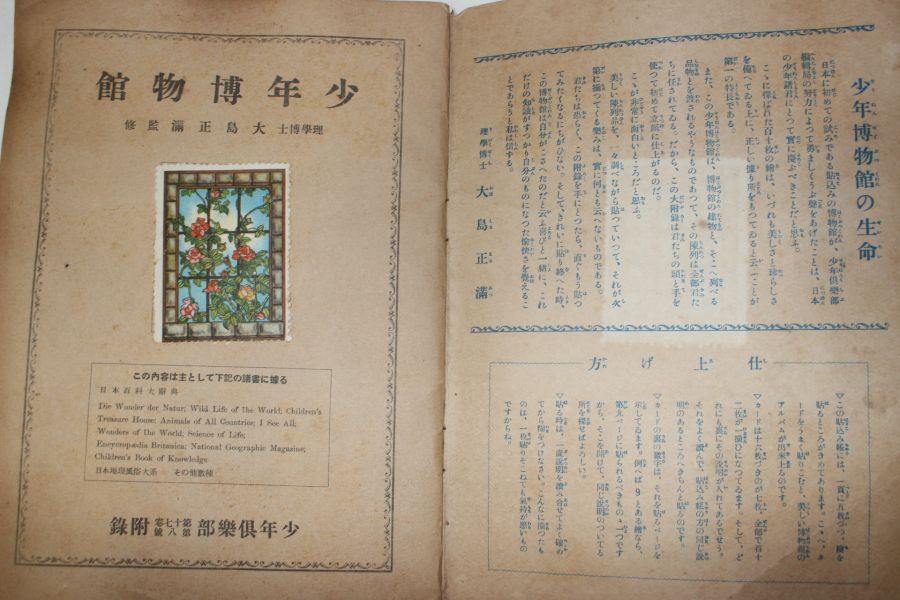 少年博物館の生命
日本に初めての試みである貼込みの博物館が、少年俱樂部
編輯局の努力によつて勇ましくうぶ聲をあげたことは、日本
の少年諸君にとつて實に慶ぶべきことだと思ふ。
こゝに擇ばれた百十枚の繪は、いづれも美しさと珍らしさ
を備へてゐる上に、正しい據り所をもつてゐると云ふことが
第一の特長である。
また、この少年博物館は、博物館の建物と、そこへ列べる
品物とを渡されるやうなものであつて、その陳列は全部君た
ちに任されてゐる。だから、この大附錄は君たちの頭と手を
使つて初めて立派に仕上がるのだ。
こゝが非常に面白いところだと思ふ。
美しい陳列品を、一々調べながら貼つていつて、それが次
第に揃つてくる樂みは、實に何とも云へないものである。
君たちは恐らく、この附錄を手にとつたら、直ぐもう貼つ
てみたくなるにちがひない。そして、きれいに貼り終へた時、
この博物館は自分がこさへたのだと云ふ喜びと一緒に、これ
だけの知識がすつかり自分のものになつた愉快さを覺えるこ
とであらうと私は信ずる。
理學博士 大島正滿
仕上げ方
▽この貼込み帳には、一頁に五枚づゝ、繪を
貼るところがきめてあります。こゝへ、カ
ードをうまく貼りこむと、美しい博物館の
アルバムが出來上るのです。
▽カードは十六枚づきのが七枚、全部で百十
二枚が一揃ひになつてゐます。そして、ど
れにも裏にその說明が入れてあるでせう。
それをよく讀んで、貼込み帳の方の同じ說
明のあるところへきちんと貼るのです。
▽カードの裏の數字は、それを貼るページを
示してゐます。例へば9とある繪なら、
第九ページに貼られるべきものゝ一つです
から、そこを開けて、同じ說明のついてる
所を探せばよろしい。
▽貼る時は、一度說明を讀み合せてよく確め
てから糊をつけなさい。こんなに揃つたも
のは、一枚貼りそこねても氣持が惡いもの
ですからね。
少年博物館
理學博士 大島正滿 監修
この內容は主として下記の諸書に據る
日本百科大辭典
Die Wunder der Natur; Wild Life of the World; Children's
Treasure House; Animals of All Countries; I See All;
Wonders of the World; Science of Life;
Encyropædia Britanica; National Geographic Magazine;
Children's Book of Knowledge
日本地理風俗大系 その他數種
少年俱樂部 第十七卷 第八號 附錄